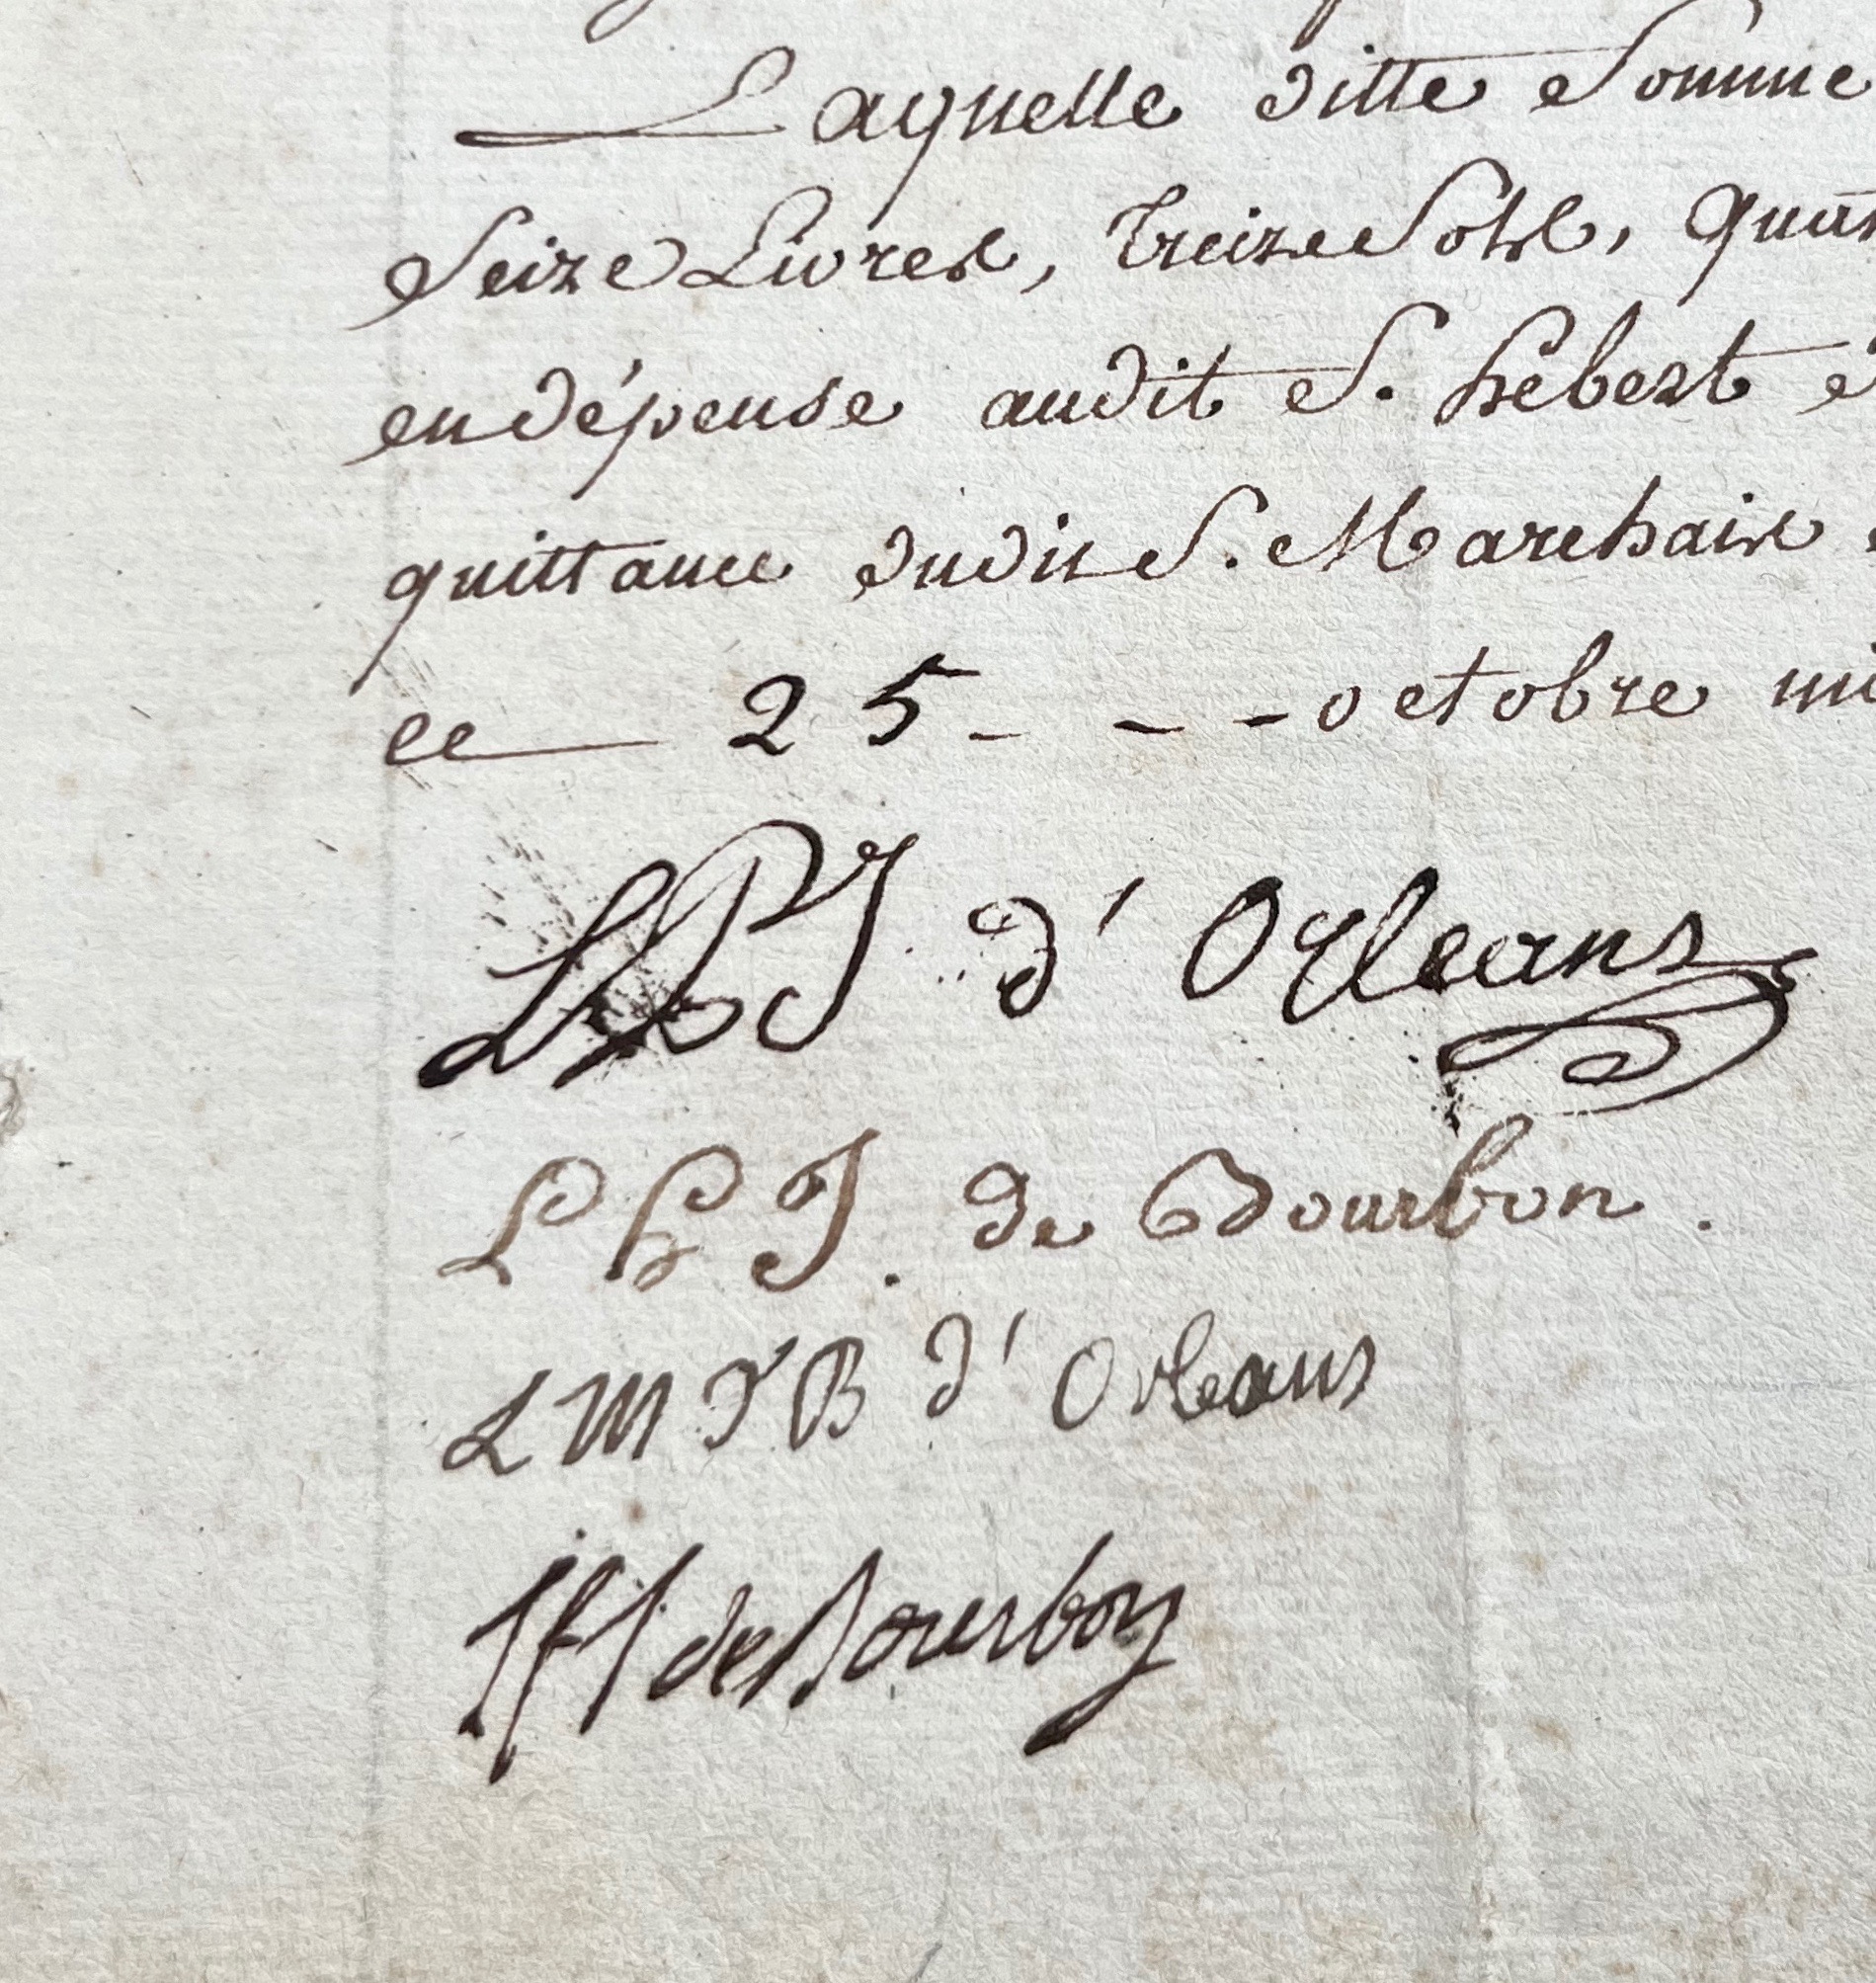 Laquelle ditte Somme
Seize Livres, treize Sols, quat
en dépense audit S. hébert
quittance dudit S. Marchais
ce 25 - - - octobre mi
LPJ d'Orleans
LHJ. de Bourbon.
LMTB d'Orleans
LFJ de Bourbon